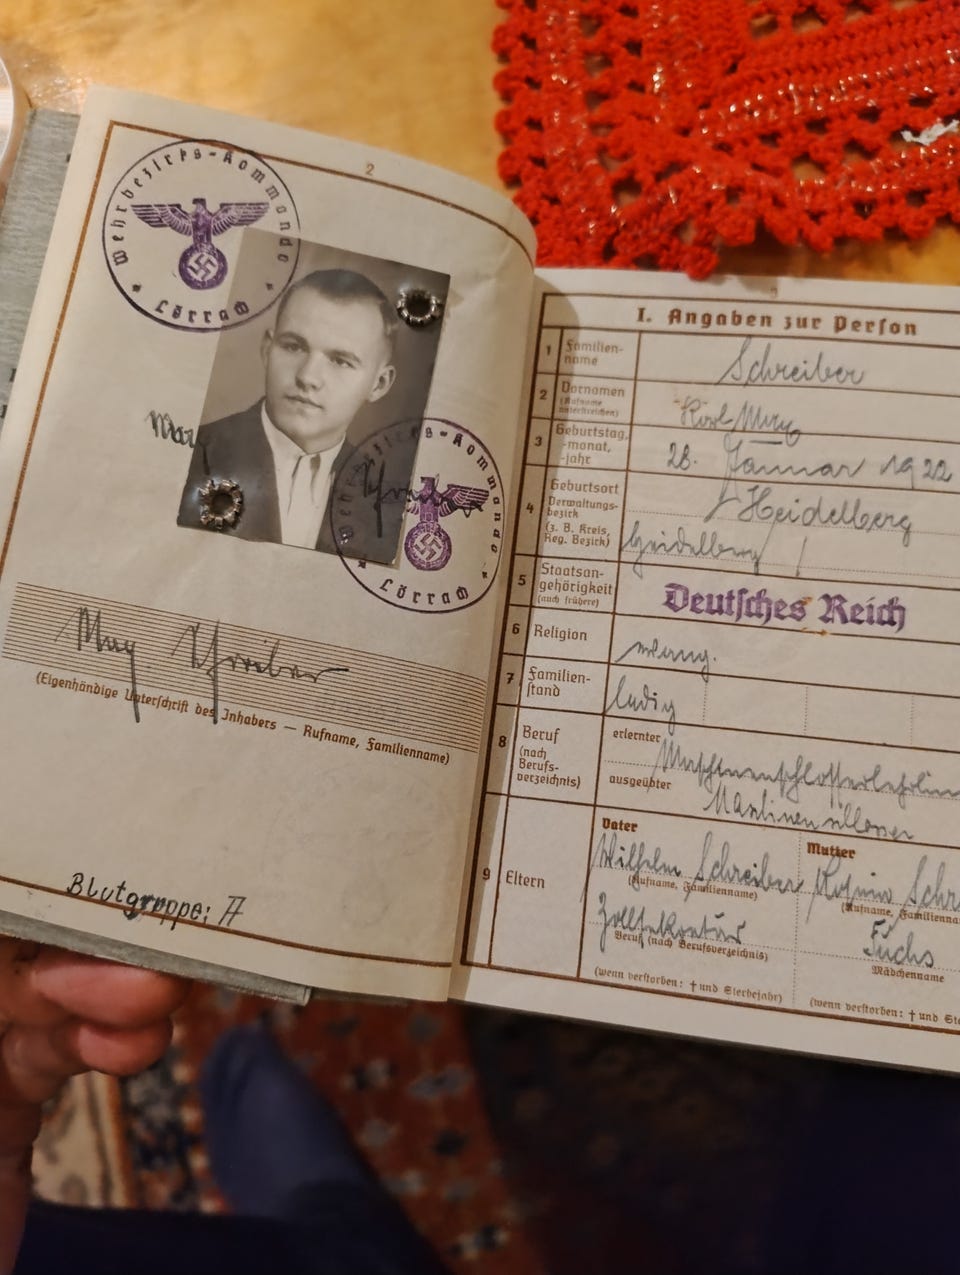 2
Wehrbezirks-Kommando
Lörrach
Wehrbezirks-Kommando
Lörrach
Schreiber
(Eigenhändige Unterschrift des Inhabers — Rufname, Familienname)
Blutgruppe: A
3
I. Angaben zur Person
1 Familien-
name
Schreiber
2 Vornamen
(Rufname
unterstreichen)
Karl
3 Geburtstag,
-monat,
-jahr
28. Januar 1922
4 Geburtsort
Verwaltungs-
bezirk
(z. B. Kreis,
Reg. Bezirk)
Heidelberg
Heidelberg
5 Staatsan-
gehörigkeit
(auch frühere)
Deutsches Reich
6 Religion
evang.
7 Familien-
stand
ledig
8 Beruf
(nach
Berufs-
verzeichnis)
erlernter
Maschinenschlosserlehrlin
ausgeübter
Maschinenschlosser
9 Eltern
Vater
Wilhelm Schreiber
(Rufname, Familienname)
Zollsekretär
Beruf (nach Berufsverzeichnis)
(wenn verstorben: † und Sterbejahr)
Mutter
Schr
(Rufname, Familienna
Fuchs
Mädchenname
(wenn verstorben: † und Ste